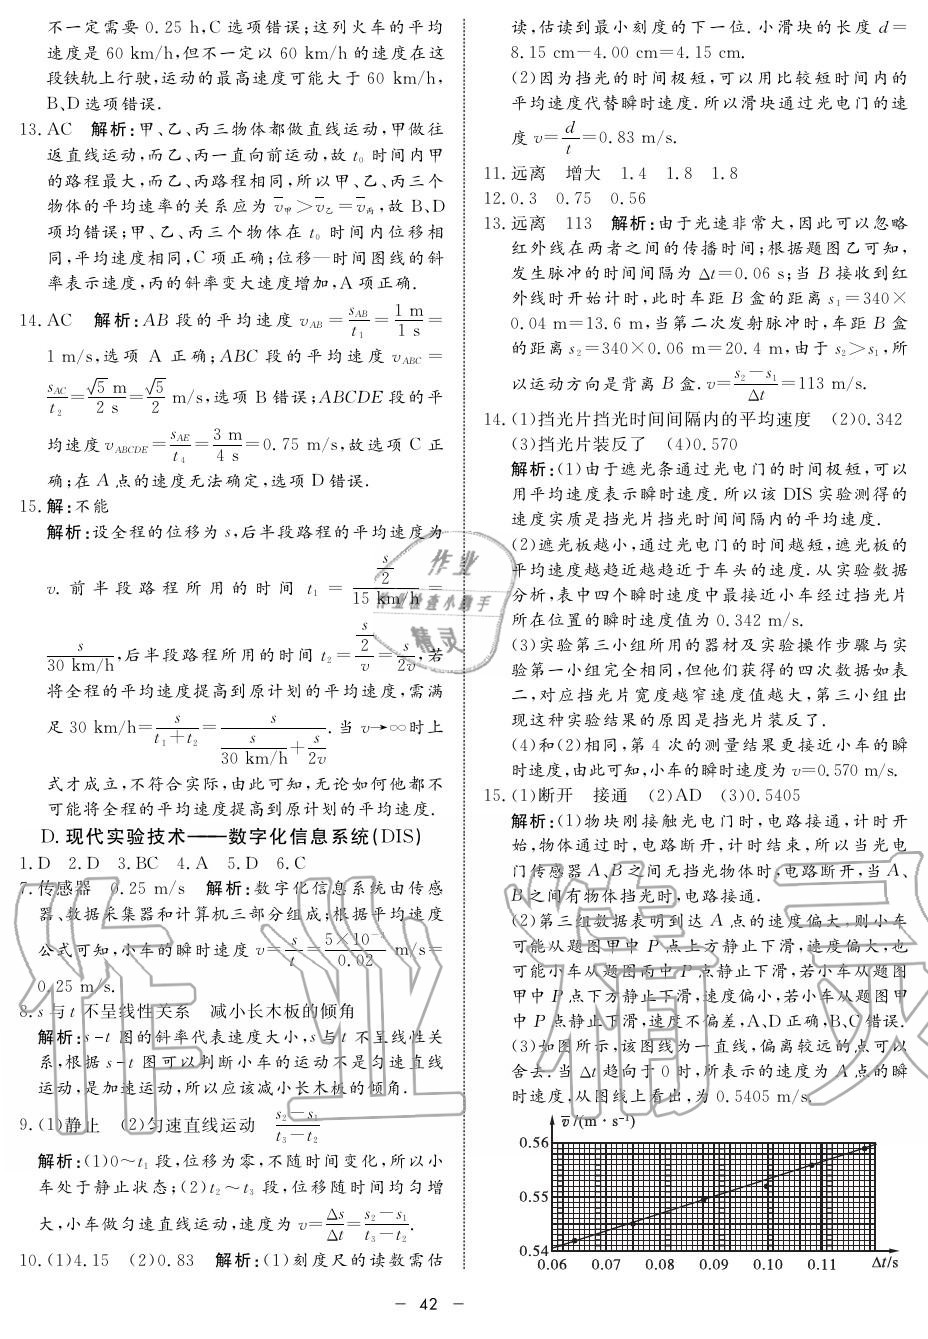 不一定需要 0.25 h,C 选项错误;这列火车的平均
速度是 60 km/h,但不一定以 60 km/h 的速度在这
段铁轨上行驶,运动的最高速度可能大于 60 km/h,
B、D 选项错误.
13. AC 解析:甲、乙、丙三物体都做直线运动,甲做往
返直线运动,而乙、丙一直向前运动,故 t₀ 时间内甲
的路程最大,而乙、丙路程相同,所以甲、乙、丙三个
物体的平均速率的关系应为 v̅甲>v̅乙=v̅丙,故 B、D
项均错误;甲、乙、丙三个物体在 t₀ 时间内位移相
同,平均速度相同,C 项正确;位移—时间图线的斜
率表示速度,丙的斜率变大速度增加,A 项正确.
14. AC 解析:AB 段的平均速度 v_AB = s_AB/t₁ = 1 m/1 s =
1 m/s,选项 A 正确;ABC 段的平均速度 v_ABC =
s_AC/t₂ = √5 m/2 s = √5/2 m/s,选项 B 错误;ABCDE 段的平
均速度 v_ABCDE = s_AE/t₄ = 3 m/4 s = 0.75 m/s,故选项 C 正
确;在 A 点的速度无法确定,选项 D 错误.
15. 解:不能
解析:设全程的位移为 s,后半段路程的平均速度为
v. 前半段路程所用的时间 t₁ = (s/2)/(15 km/h) =
s/(30 km/h),后半段路程所用的时间 t₂ = (s/2)/v = s/2v,若
将全程的平均速度提高到原计划的平均速度,需满
足 30 km/h = s/(t₁+t₂) = s/(s/(30 km/h) + s/2v). 当 v→∞时上
式才成立,不符合实际,由此可知,无论如何他都不
可能将全程的平均速度提高到原计划的平均速度.
D. 现代实验技术——数字化信息系统(DIS)
1. D 2. D 3. BC 4. A 5. D 6. C
7. 传感器 0.25 m/s 解析:数字化信息系统由传感
器、数据采集器和计算机三部分组成;根据平均速度
公式可知,小车的瞬时速度 v = s/t = 5×10⁻³/0.02 m/s =
0.25 m/s.
8. s 与 t 不呈线性关系 减小长木板的倾角
解析:s-t 图的斜率代表速度大小,s 与 t 不呈线性关
系,根据 s-t 图可以判断小车的运动不是匀速直线
运动,是加速运动,所以应该减小长木板的倾角.
9. (1)静止 (2)匀速直线运动 (s₂-s₁)/(t₃-t₂)
解析:(1)0~t₁ 段,位移为零,不随时间变化,所以小
车处于静止状态;(2)t₂~t₃ 段,位移随时间均匀增
大,小车做匀速直线运动,速度为 v = Δs/Δt = (s₂-s₁)/(t₃-t₂).
10. (1)4.15 (2)0.83 解析:(1)刻度尺的读数需估
读,估读到最小刻度的下一位. 小滑块的长度 d=
8.15 cm-4.00 cm=4.15 cm.
(2)因为挡光的时间极短,可以用比较短时间内的
平均速度代替瞬时速度. 所以滑块通过光电门的速
度 v = d/t = 0.83 m/s.
11. 远离 增大 1.4 1.8 1.8
12. 0.3 0.75 0.56
13. 远离 113 解析:由于光速非常大,因此可以忽略
红外线在两者之间的传播时间;根据题图乙可知,
发生脉冲的时间间隔为 Δt=0.06 s;当 B 接收到红
外线时开始计时,此时车距 B 盒的距离 s₁=340×
0.04 m=13.6 m,当第二次发射脉冲时,车距 B 盒
的距离 s₂=340×0.06 m=20.4 m,由于 s₂>s₁,所
以运动方向是背离 B 盒. v = (s₂-s₁)/Δt = 113 m/s.
14. (1)挡光片挡光时间间隔内的平均速度 (2)0.342
(3)挡光片装反了 (4)0.570
解析:(1)由于遮光条通过光电门的时间极短,可以
用平均速度表示瞬时速度. 所以该 DIS 实验测得的
速度实质是挡光片挡光时间间隔内的平均速度.
(2)遮光板越小,通过光电门的时间越短,遮光板的
平均速度越趋近越趋近于车头的速度. 从实验数据
分析,表中四个瞬时速度中最接近小车经过挡光片
所在位置的瞬时速度值为 0.342 m/s.
(3)实验第三小组所用的器材及实验操作步骤与实
验第一小组完全相同,但他们获得的四次数据如表
二,对应挡光片宽度越窄速度值越大,第三小组出
现这种实验结果的原因是挡光片装反了.
(4)和(2)相同,第 4 次的测量结果更接近小车的瞬
时速度,由此可知,小车的瞬时速度为 v=0.570 m/s.
15. (1)断开 接通 (2)AD (3)0.5405
解析:(1)物块刚接触光电门时,电路接通,计时开
始,物体通过时,电路断开,计时结束,所以当光电
门传感器 A、B 之间无挡光物体时,电路断开,当 A、
B 之间有物体挡光时,电路接通.
(2)第三组数据表明到达 A 点的速度偏大,则小车
可能从题图甲中 P 点上方静止下滑,速度偏大,也
可能小车从题图丙中 P 点静止下滑,若小车从题图
甲中 P 点下方静止下滑,速度偏小,若小车从题图甲
中 P 点静止下滑,速度不偏差,A、D 正确,B、C 错误.
(3)如图所示,该图线为一直线,偏离较远的点可以
舍去. 当 Δt 趋向于 0 时,所表示的速度为 A 点的瞬
时速度,从图线上看出,为 0.5405 m/s.
v̅/(m·s⁻¹)
0.56
0.55
0.54
0.06 0.07 0.08 0.09 0.10 0.11 Δt/s
— 42 —
作业
作业检查小助手
精灵
作业精灵